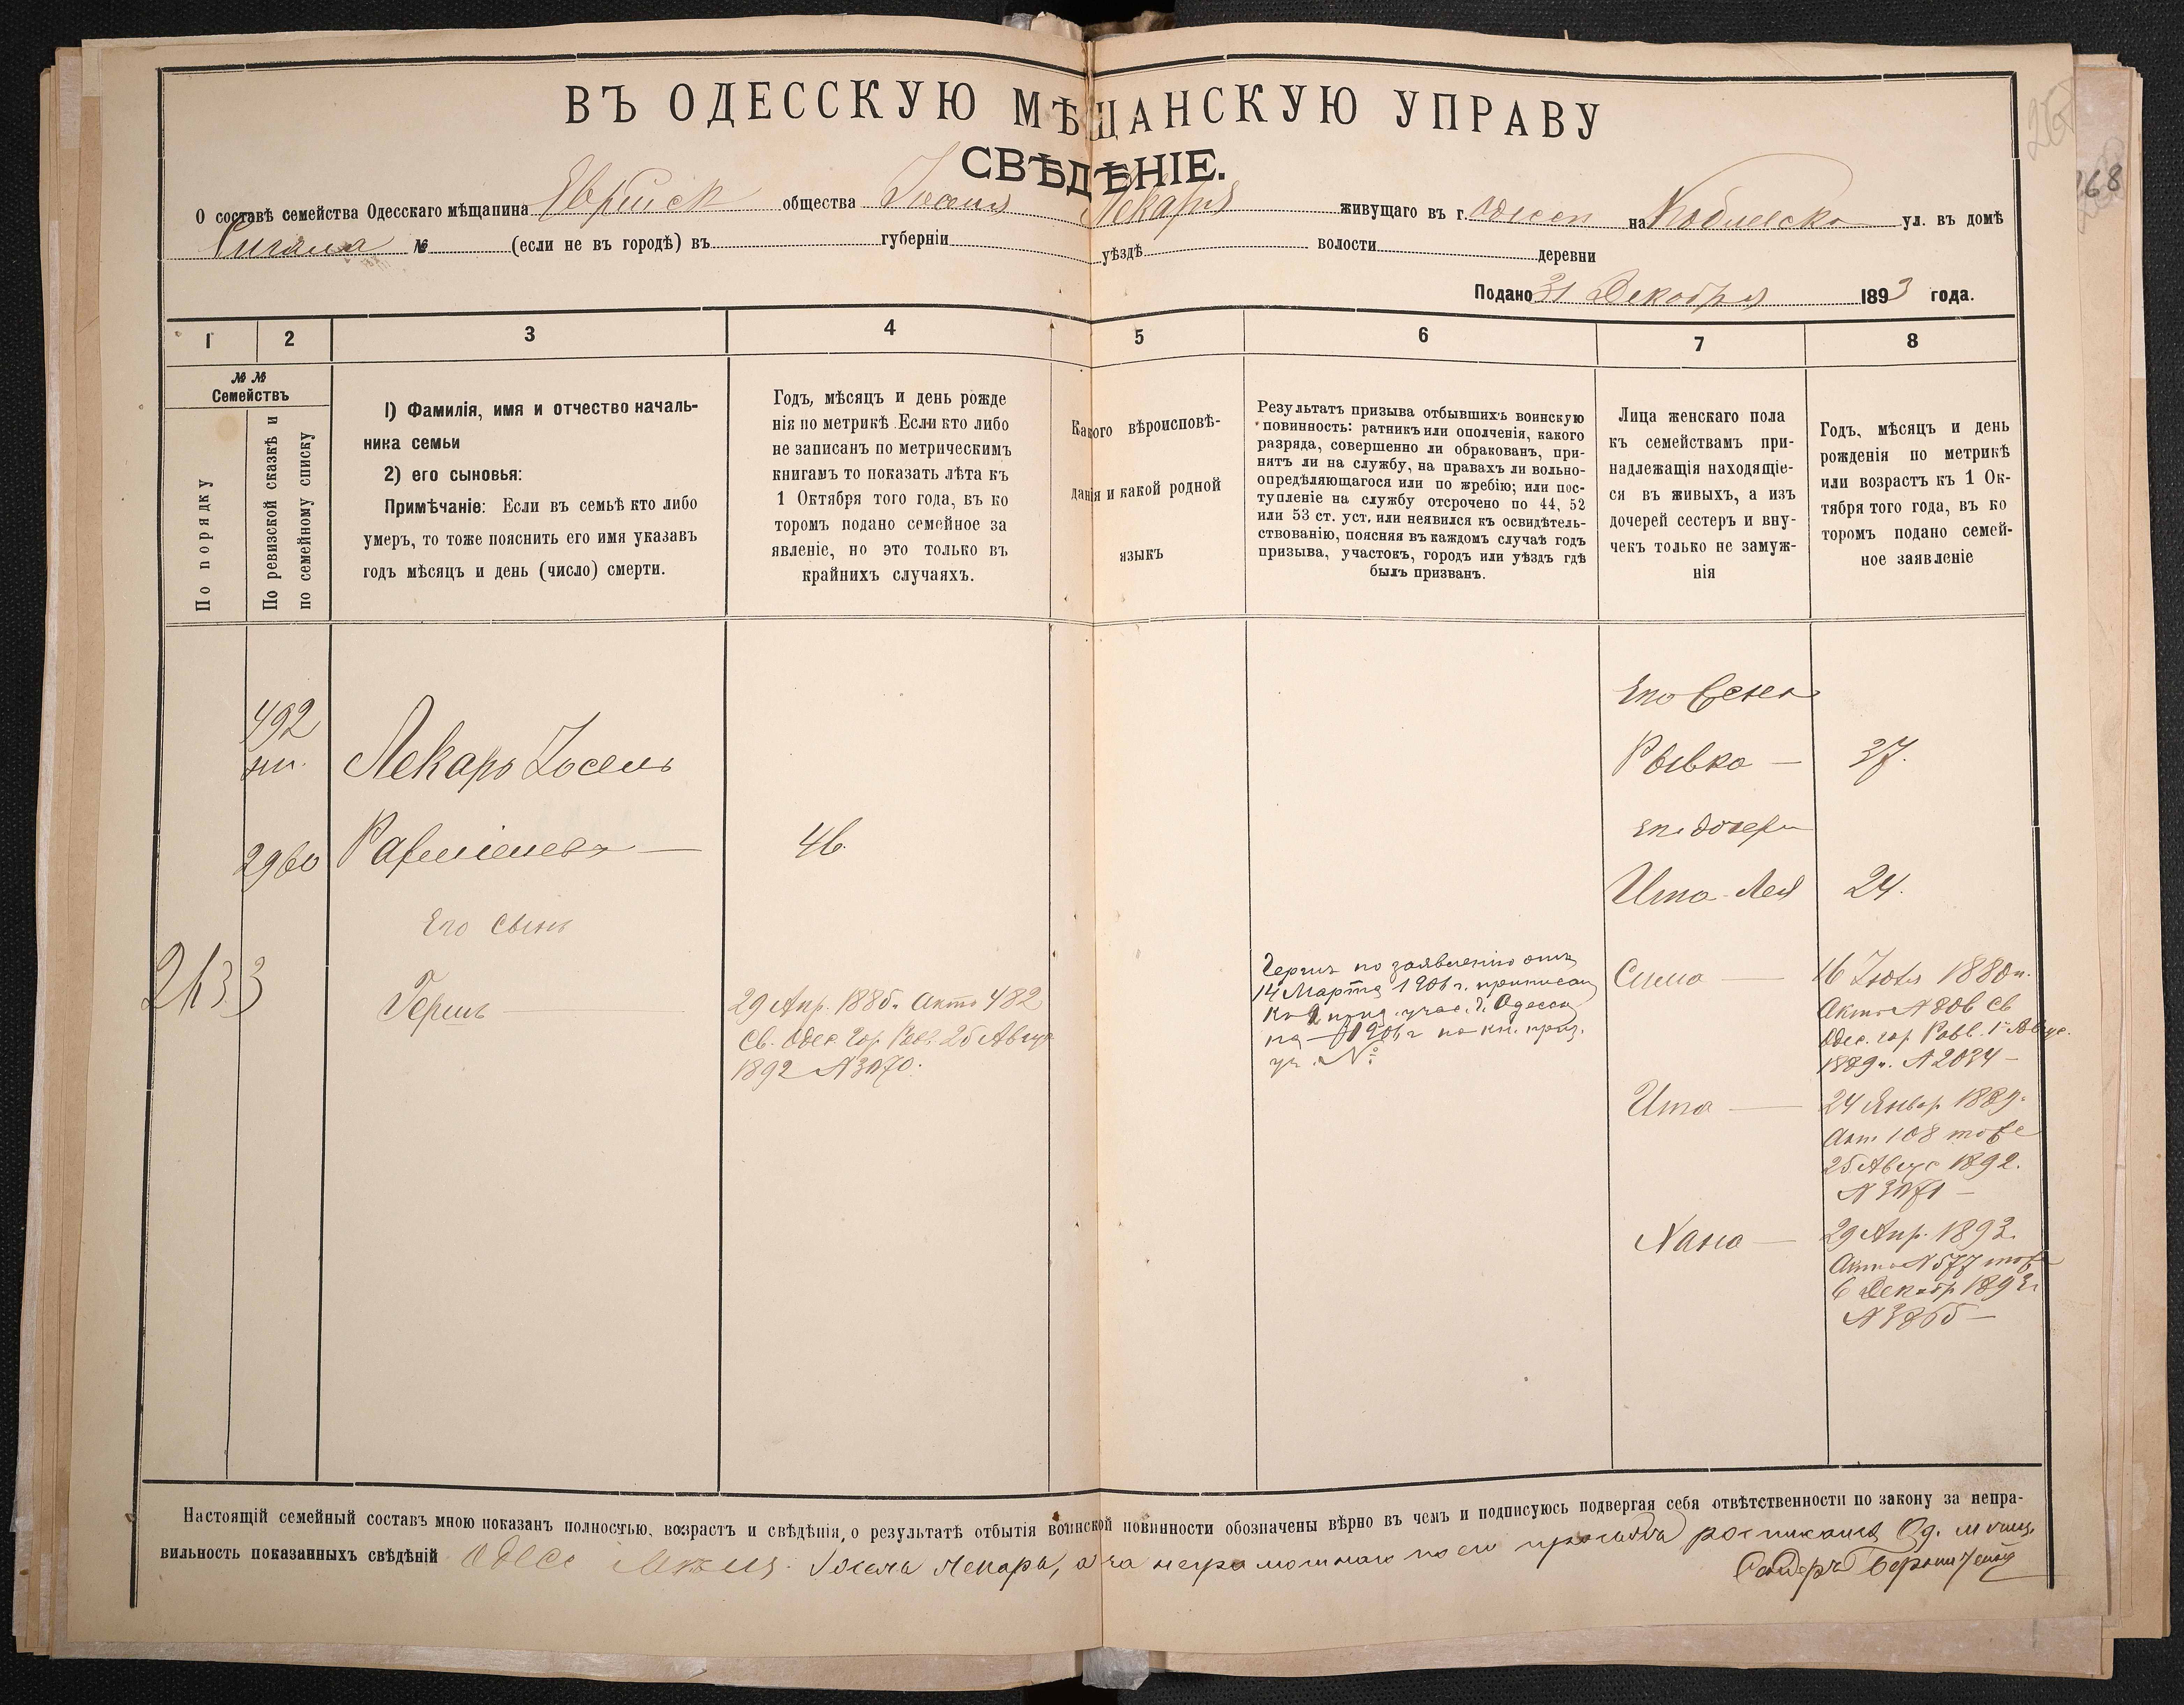 ВЪ ОДЕССКУЮ МѢЩАНСКУЮ УПРАВУ
СВѢДѢНІЕ.
О составѣ семейства Одесскаго мѣщанина Еврейск общества Іоселя Лекаря живущаго въ г. Одессѣ на Кобылевско ул. въ домѣ
№ (если не въ городѣ) въ губерніи уѣздѣ волости деревни
Подано 31 Декабря 1893 года.
1 2 3 4 5 6 7 8
№ №
Семействъ
По порядку
По ревизской сказкѣ и
по семейному списку
1) Фамилія, имя и отчество началь-
ника семьи
2) его сыновья:
Примѣчаніе: Если въ семьѣ кто либо
умеръ, то тоже пояснить его имя указавъ
годъ мѣсяцъ и день (число) смерти.
Годъ, мѣсяцъ и день рожде
нія по метрикѣ Если кто либо
не записанъ по метрическимъ
книгамъ то показать лѣта къ
1 Октября того года, въ ко
торомъ подано семейное за
явленіе, но это только въ
крайнихъ случаяхъ.
Какого вѣроисповѣ-
данія и какой родной
языкъ
Результатъ призыва отбывшихъ воинскую
повинность: ратникъ или ополченія, какого
разряда, совершенно ли обракованъ, при-
нятъ ли на службу, на правахъ ли вольно-
опредѣляющагося или по жребію; или пос-
тупленіе на службу отсрочено по 44, 52
или 53 ст. уст. или неявился къ освидѣтель-
ствованію, поясняя въ каждомъ случаѣ годъ
призыва, участокъ, городъ или уѣздъ гдѣ
былъ призванъ.
Лица женскаго пола
къ семействамъ при-
надлежащія находящіе-
ся въ живыхъ, а изъ
дочерей сестеръ и вну-
чекъ только не замуж-
нія
Годъ, мѣсяцъ и день
рожденія по метрикѣ
или возрастъ къ 1 Ок-
тября того года, въ ко
торомъ подано семей-
ное заявленіе
492
2960
Лекарь Іосель
46
Его сынъ
2433
Гершъ
29 Апр. 1885 г. Актъ 482
Св. Одес. гор. Равв. 25 Авгус
1892 №3070.
Гершъ по заявленію отъ
14 Марта 1906 г. приписан
уч. №
Его жена
Ривка — 37.
Его дочери
Ита-Лея 24.
Сима — 16 Іюля 1880 г.
Актъ №806 Св
Одес. гор Равв. 1 Авгус.
1889 г. №2034 —
Ита — 24 Январ. 1889 г.
Акт. 108 тоже
25 Авгус 1892.
№3071 —
Хана — 29 Апр. 1893.
Актъ №577 тоже
6 Декабр 1893 г
№3865 —
Настоящій семейный составъ мною показанъ полностью, возрастъ и свѣдѣнія, о результатѣ отбытія воинской повинности обозначены вѣрно въ чемъ и подписуюсь подвергая себя отвѣтственности по закону за непра-
вильность показанныхъ свѣдѣній Одесс Іосель Лекарь, а за неграмотнаго по его просьбѣ росписался Од. мѣщ.
268